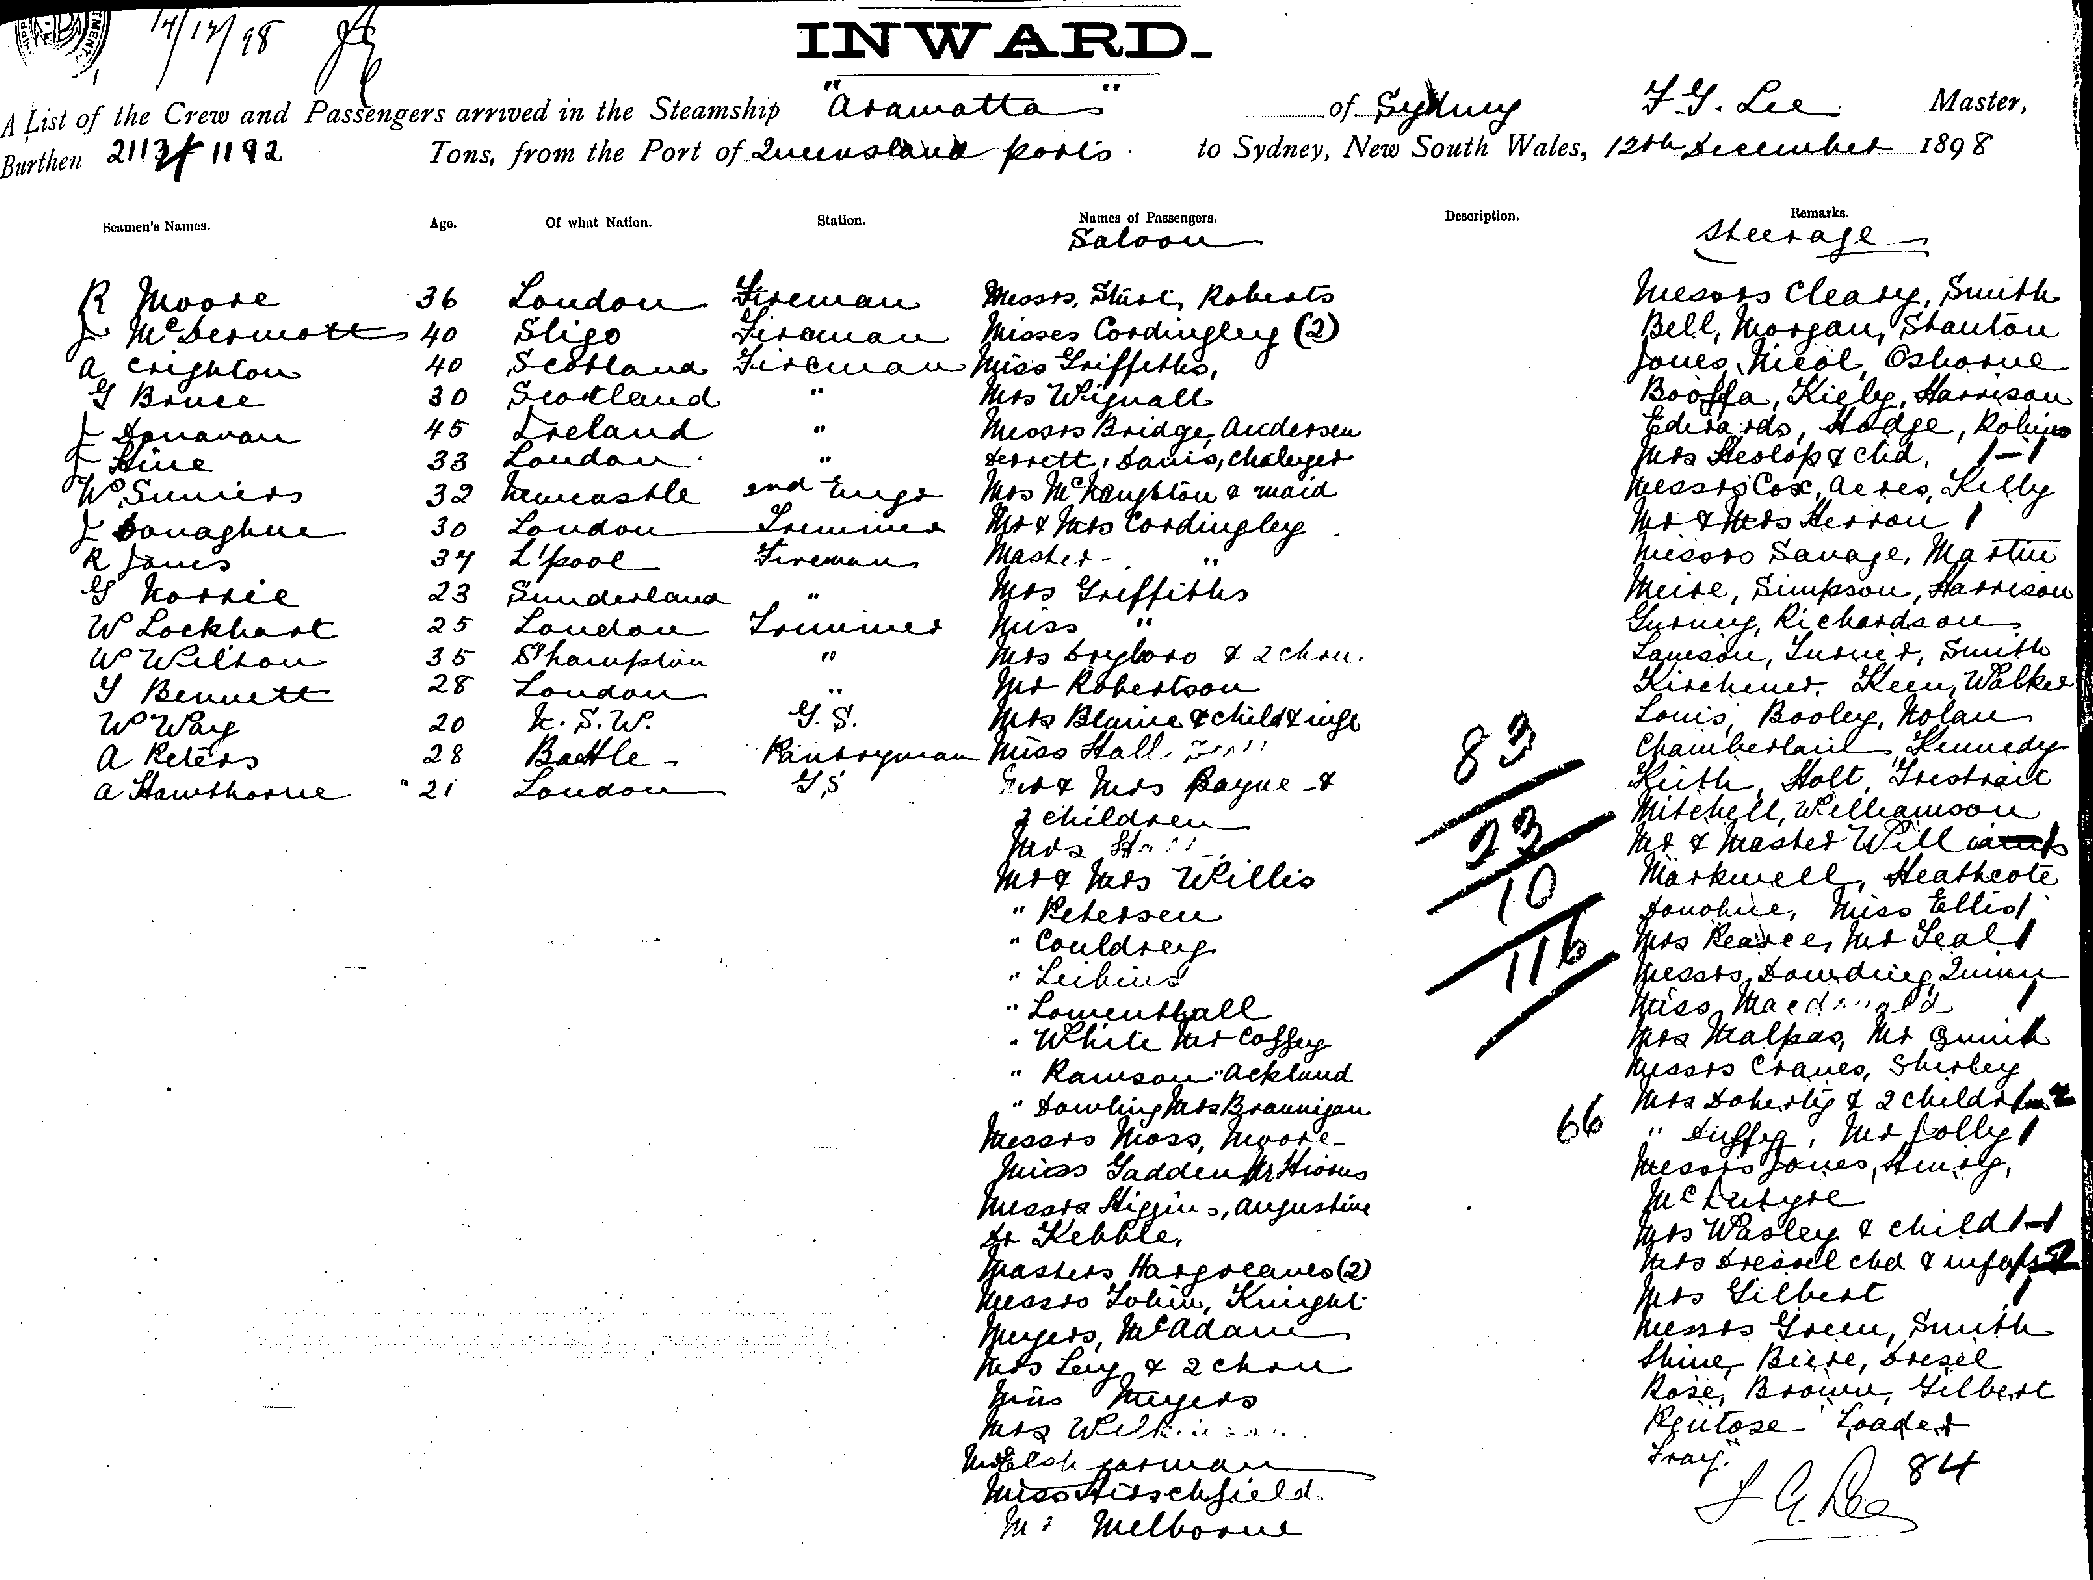 14/12/98
INWARD.
A List of the Crew and Passengers arrived in the Steamship "Aramatta" of Sydney F. G. Lee Master,
Burthen 2113/1192 Tons, from the Port of Queensland ports to Sydney, New South Wales, 12th December 1898
Seamen's Names. Age. Of what Nation. Station. Names of Passengers. Description. Remarks.
Saloon Steerage
R Moore 36 London Fireman Messrs. Roberts Messrs Cleary, Smith
J McDermott 40 Sligo Fireman Misses Cordingley (2) Bell, Morgan, Stanton
A Crighton 40 Scotland Fireman Miss Griffiths, Jones, Nicol, Osborne
G Bruce 30 Scotland " Mrs Wignall Kielly, Harrison
J Donavan 45 Ireland " Messrs Bridge, Andersen Edwards, Hodge, Robins
J Hine 33 London " Derrett, Davis, Mrs Heslop & Chd. 1-1
W. Summers 32 Newcastle 2nd Engr Mrs McNaughton & maid Messrs Cox, Acres, Kelly
J Donaghue 30 London Trimmer Mr & Mrs Cordingley Mr & Mrs Herron 1
R Jones 34 L'pool Fireman Master " Messrs Savage, Martin
G Norrie 23 Sunderland " Mrs Griffiths Simpson, Harrison
W Lockhart 25 London Trimmer Miss " Gurney, Richardson
W Wilson 35 S'hampton " Mrs & 2 chrn. Turner, Smith
Y Bennett 28 London " Mr Robertson Kirchener, Keen, Walker
W Way 20 N. S. W. G. S. Mrs Blaine & child & inft Louis, Booley, Nolan
A Peters 28 Battle Pantryman Miss Hall Chamberlain, Kennedy
A Hawthorne 21 London G.S Mr & Mrs Payne & Keith, Holt,
83
2 children Mitchell, Williamson
23
Mrs Mr & Master Williams
Mr & Mrs Willis Markwell, Heathcote
10
" Petersen Donohue, Miss Ellis 1
" Couldrey Mrs Pearce, Mr Teal 1
116
" Messrs, Dowding, Quinn
" Lowenthall Miss Macdonald 1
" White Mr Coffey Mrs Malpas, Mr Smith
" Ramson " Ackland Messrs Cranes, Shirley
" Dowling Mrs Brannigan Mrs Doherty & 2 children 1-2
66
Messrs Moss, Moore " Duffy, Mr Jolly 1
Miss Gadden Mr Hiorns Messrs Jones, Henry,
Messrs Higgins, Augustine McIntyre
Dr Kebble, Mrs Wasley & child 1-1
Masters Hargreaves (2) Mrs Dressel chd & infant
Messrs Tobin, Knight Mrs Gilbert 1
Meyers, McAdam Messrs Green, Smith
Mrs Ley & 2 chrn Shine, Biere, Dresel
Miss Meyers Rose, Brown, Gilbert
Mrs Wilkinson Loader
Jarman Tray.
84
Miss Hirschfield
F G Lee
Mr Melborne